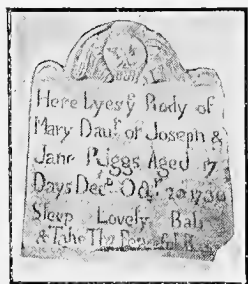 Here Lyes yͤ Body of
Mary Dauᵗ. of Joseph &
Jane Riggs Aged 17
Days Decᵈ. Octʳ. 20 1736
Sleep Lovely Bab
& Take Thy Peaceful